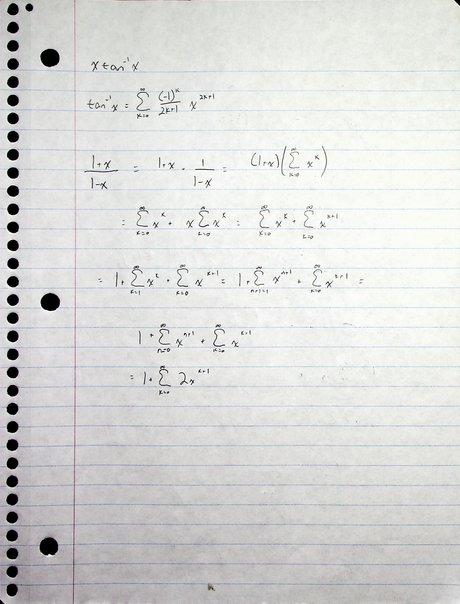 x tan⁻¹ x
tan⁻¹ x = ∑_{k=0}^{∞} (-1)^k/(2k+1) x^{2k+1}
(1+x)/(1-x) = 1+x · 1/(1-x) = (1+x)(∑_{k=0}^{∞} x^k)
= ∑_{k=0}^{∞} x^k + x∑_{k=0}^{∞} x^k = ∑_{k=0}^{∞} x^k + ∑_{k=0}^{∞} x^{k+1}
= 1+∑_{k=1}^{∞} x^k + ∑_{k=0}^{∞} x^{k+1} = 1+∑_{n+1=1}^{∞} x^{n+1} + ∑_{k=0}^{∞} x^{k+1} =
1+∑_{n=0}^{∞} x^{n+1} + ∑_{k=0}^{∞} x^{k+1}
= 1+∑_{k=0}^{∞} 2x^{k+1}